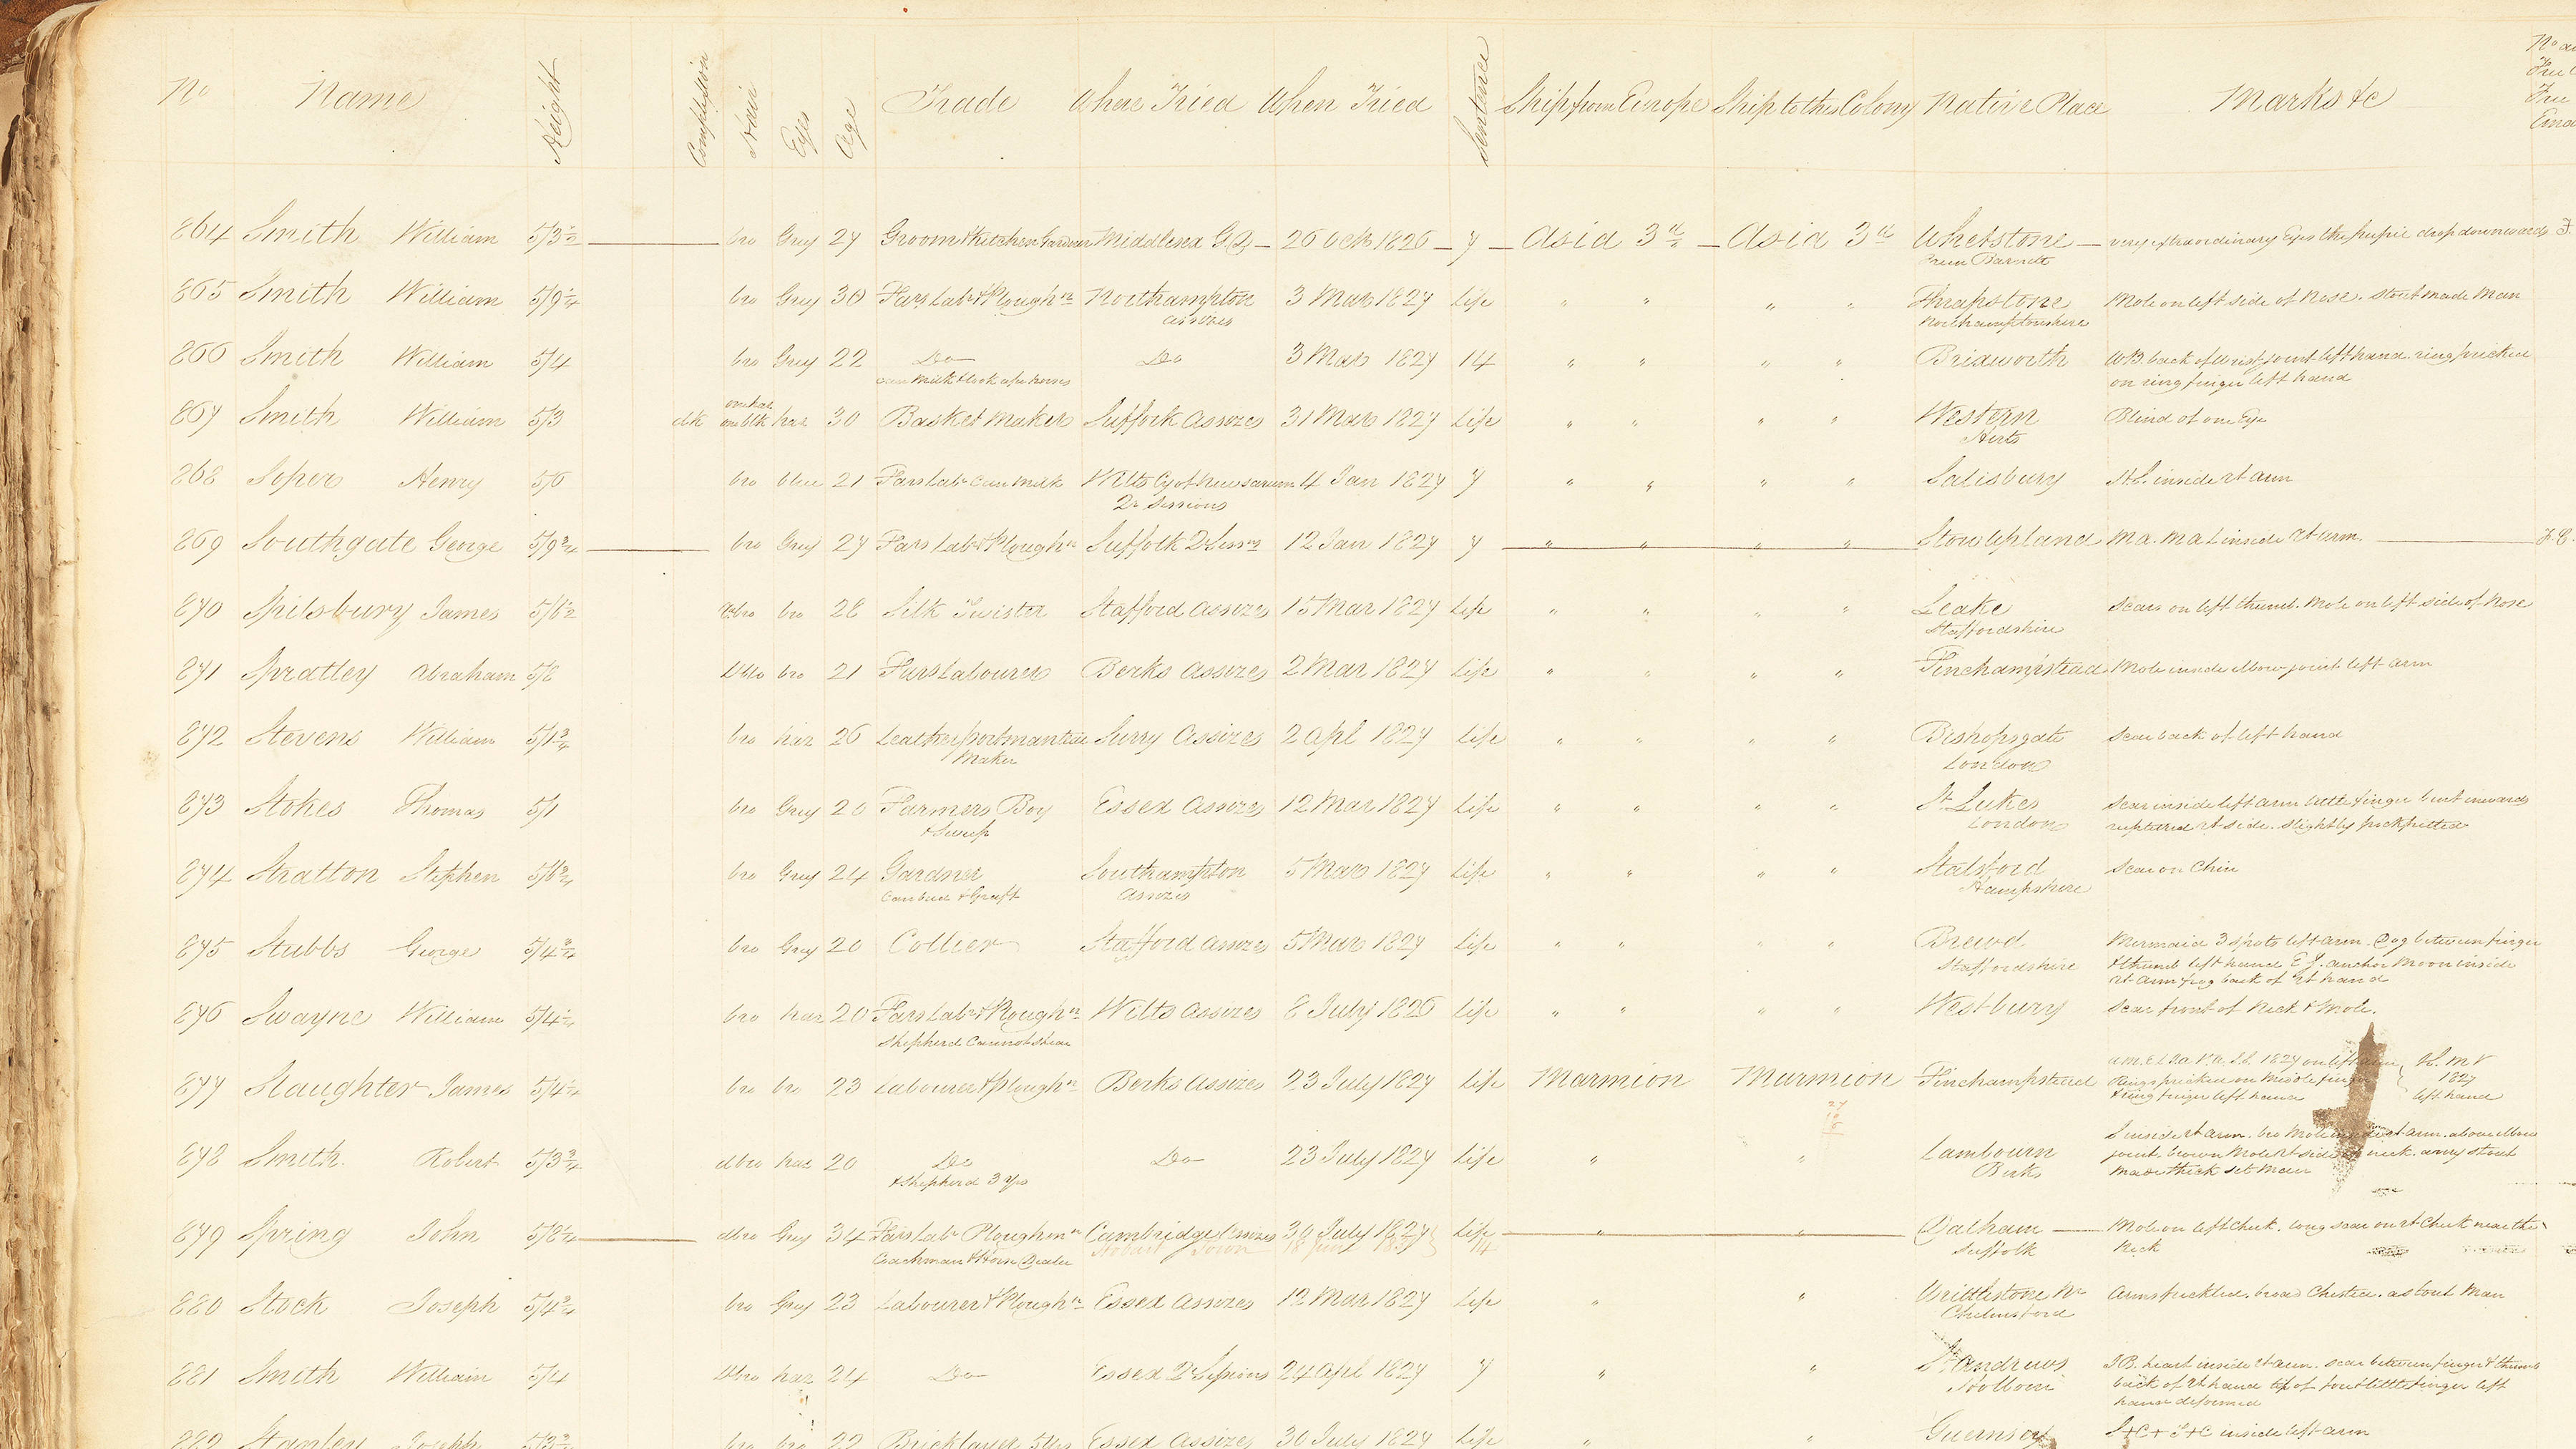 No Name Height Complexion Hair Eyes Age Trade Where Tried When Tried Sentence Ship from Europe Ship to this Colony Native Place Marks &c
864 Smith William 5/3½ bro Grey 27 Groom & Kitchen Gardener Middlesex G.D. 26 Octr 1826 7 Asia 3d Asia 3d Whetstone very extraordinary Eyes the pupil drop downwards
Barnett
865 Smith William 5/9¼ bro Grey 30 Fars Labr & Ploughn Northampton 3 Mar 1827 Life " " " " Thrapstone Mole on left side of Nose. stout made Man
assizes Northamptonshire
866 Smith William 5/4 bro Grey 22 Do Do 3 Mar 1827 14 " " " " Brixworth W.B. back of Wrist joint left hand. ring pricked
can Milk & look after horses on ring finger left hand
867 Smith William 5/3 dk one blk haz 30 Basket Maker Suffolk Assizes 31 Mar 1827 Life " " " " Western Blind of one Eye
Herts
868 Soper Henry 5/6 bro blue 21 Fars Labr Can Milk Wilts Cy of New Sarum 4 Jan 1827 7 " " " " Salisbury H.S. inside rt arm
Qr Sessions
869 Southgate George 5/9¾ bro Grey 27 Fars Labr & Ploughn Suffolk Qr Sessns 12 Jan 1827 7 " " " " Stowupland Ma. Ma L inside rt arm.
870 Spilsbury James 5/6½ bro 28 Silk Twister Stafford Assizes 15 Mar 1827 Life " " " " Leake Scar on left thumb. Mole on left side of Nose
Staffordshire
871 Spratley Abraham 5/8 Dbro bro 21 Fars Labourer Berks Assizes 2 Mar 1827 Life " " " " Finchampstead Mole inside elbow joint left arm
872 Stevens William 5/1¾ bro haz 26 Leather portmanteau Surry Assizes 2 Apl 1827 Life " " " " Bishopsgate Scar back of left hand
Maker London
873 Stokes Thomas 5/1 bro Grey 20 Farmers Boy Essex Assizes 12 Mar 1827 Life " " " " St Lukes Scar inside left arm little finger bent inwards
& Sweep London ruptured rt side. slightly pockpitted
874 Stratton Stephen 5/6¾ bro Grey 24 Gardner Southampton 5 Mar 1827 Life " " " " Scar on Chin
Can bud & Graft Assizes Hampshire
875 Stubbs George 5/4¾ bro Grey 20 Collier Stafford Assizes 5 Mar 1827 Life " " " " Brewd Mermaid 3 spots left arm. Dog between finger
Staffordshire & thumb left hand E J. anchor Moon inside
rt arm frog back of rt hand
876 Swayne William 5/4¼ bro haz 20 Fars Labr & Ploughn Wilts Assizes 8 July 1826 Life " " " " Westbury Scar front of Neck & Mole.
Shepherd Cannot Shear
877 Slaughter James 5/4½ bro bro 23 Labourer & Ploughn Berks Assizes 23 July 1827 Life Marmion Marmion Finchampstead 1827 on left arm
Rings pricked on Middle finger 1827
& ring finger left hand left hand
878 Smith Robert 5/3¾ dbro haz 20 Do Do 23 July 1827 Life " " Lambourn S inside rt arm. bro Mole inside rt arm. above elbow
& Shepherd 3 Yrs Berks joint. brown Mole rt side of neck. very stout
made thick set Man
879 Spring John 5/8¼ dbro Grey 34 Fars Labr Ploughman Cambridge Assizes 30 July 1827 Life " " Dalham Mole on left Cheek. long scar on rt Cheek near the
Coachman & Horse Dealer Hobart Town 14 Suffolk Neck
880 Stock Joseph 5/4¾ bro Grey 23 Labourer & Ploughn Essex Assizes 12 Mar 1827 Life " " Writtlestone Nr Arms freckled. broad Chested. a stout Man
Chelmsford
881 Smith William 5/4 Dbro haz 24 Do Essex Qr Sessions 24 Apl 1827 7 " " St Andrews J B. heart inside rt arm. scar between finger & thumb
Holborn back of rt hand tip of fore & little finger left
hand deformed
882 Stanley Joseph 5/3¾ bro bro 22 Bricklayer 5 Yrs Essex Assizes 30 July 1827 Life " " Guernsey S+C+ J+C inside left arm